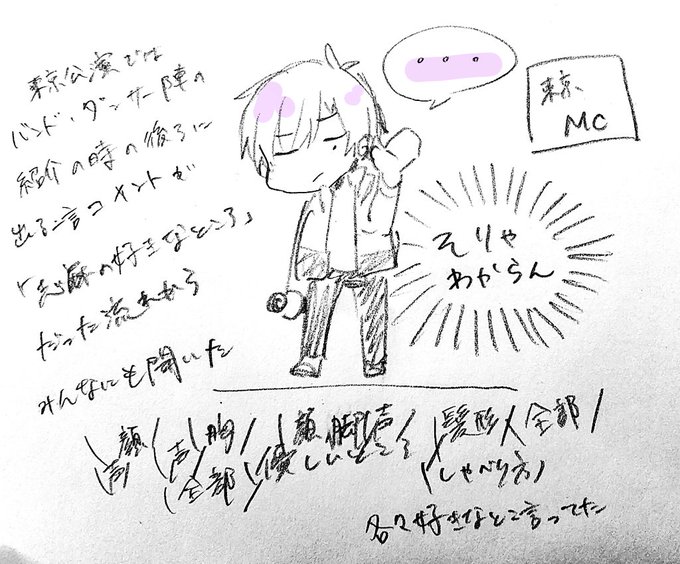 東京公演では
バンド・ダンサー陣の
紹介の時の後ろに
出る一言コメントが
「志麻の好きなところ」
だった流れから
みんなにも聞いた
• • •
東京
MC
そりゃ
わからん
顔 声 胸 顔 脚 声 髪形 全部
声 全部 優しいところ しゃべり方
各々好きなとこ言ってた